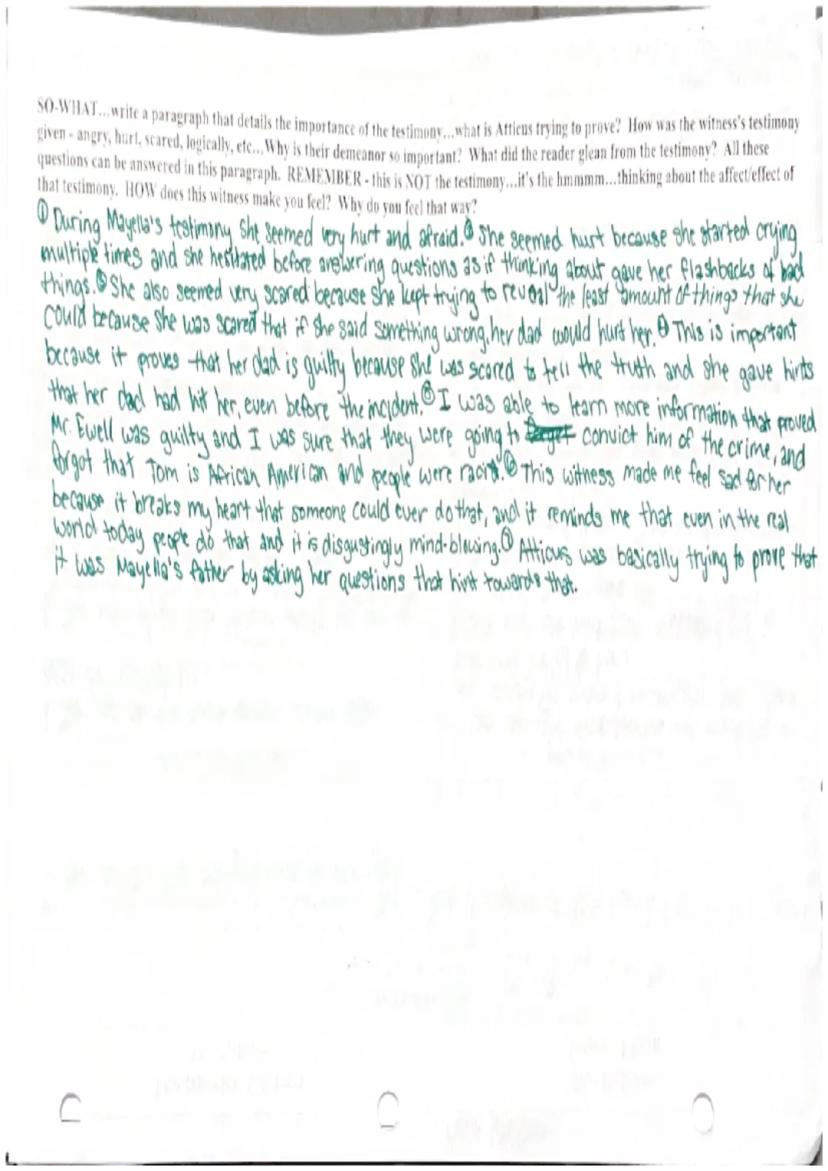 SO-WHAT...write a paragraph that details the importance of the testimony...what is Atticus trying to prove? How was the witness's testimony
given - angry, hurt, scared, logically, etc... Why is their demeanor so important? What did the reader glean from the testimony? All these
questions can be answered in this paragraph. REMEMBER - this is NOT the testimony...it's the hmmmm...thinking about the affect/effect of
that testimony. HOW does this witness make you feel? Why do you feel that way?
① During Mayella's testimony she seemed very hurt and afraid. ② She seemed hurt because she started crying
multiple times and she hesitated before answering questions as if thinking about gave her flashbacks of bad
things. ③ She also seemed very scared because she kept trying to reveal the least amount of things that she
could because she was scared that if she said something wrong, her dad would hurt her. ④ This is important
because it proves that her dad is guilty because she was scared to tell the truth and she gave hints
that her dad had hit her, even before the incident. ⑤ I was able to learn more information that proved
Mr. Ewell was guilty and I was sure that they were going to convict him of the crime, and
forgot that Tom is African American and people were racist. ⑥ This witness made me feel sad for her
because it breaks my heart that someone could ever do that, and it reminds me that even in the real
world today people do that and it is disgustingly mind-blowing. ⑦ Atticus was basically trying to prove that
it was Mayella's father by asking her questions that hint towards that.